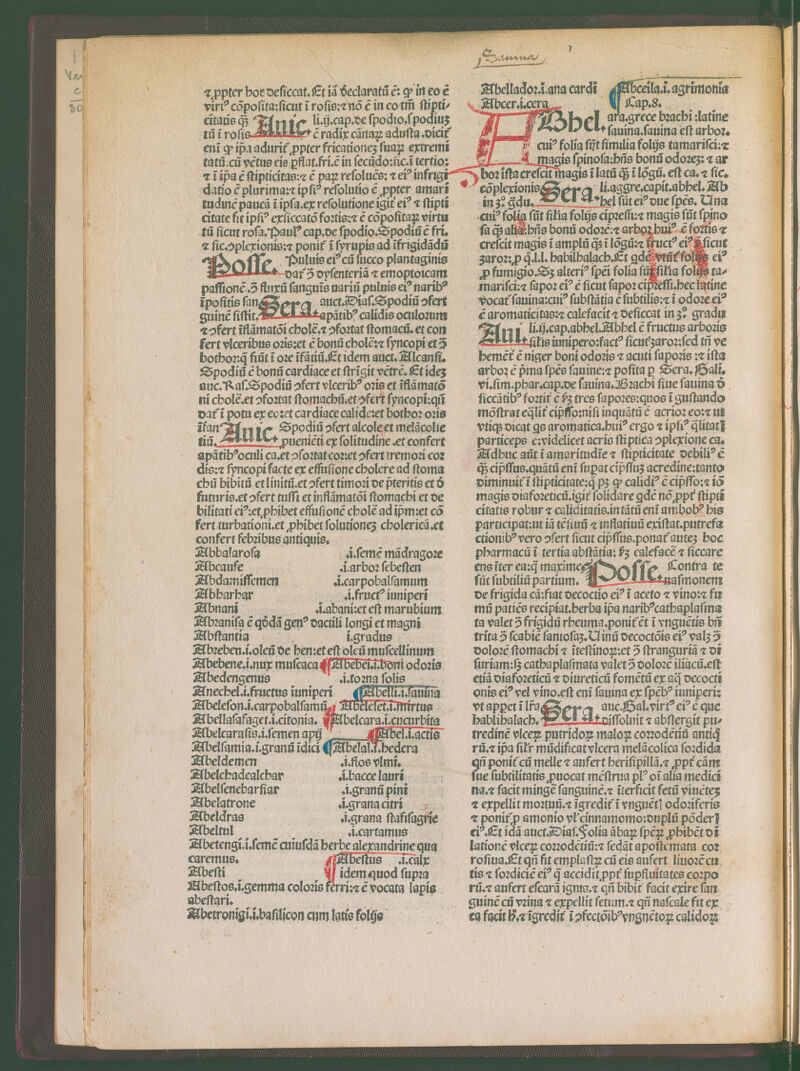 Sauina
⁊ ꝓpter hoc desiccat. Et iã declaratũ ē: qꝙ in eo ē
virtꝰ cõposita: sicut ĩ rosis: ⁊ nõ ē in eo tm̃ stipti-
citatis q̃ꝫ Auic. li.ij.cap.de spodio. spodiuꝫ
tũ ĩ rosis ē radix cãnaꝝ adusta. dicit̃
eni qꝙ ip̃a adurit̃ ꝓpter fricationeꝫ suaꝝ extremi
tatũ. cũ vẽtus eis ꝑflat. fri. ē in secũdo: sic. ĩ tertio:
⁊ ĩ ip̃a ē stipticitas: ⁊ ē paꝝ resoluēs: ⁊ eiꝰ infrigi
datio ē plurima: ⁊ ipsiꝰ resolutio ē ꝓpter amari
tudinē paucã ĩ ipsa. ex resolutione igit̃ eiꝰ ⁊ stipti
citate fit ipsiꝰ exsiccatõ fortis: ⁊ ē cõpositaꝝ virtu
tũ sicut rosa. Paulꝰ cap. de spodio. Spodiũ ē fri.
⁊ sic. ↄplexionis: ⁊ ponit̃ ĩ syrupis ad ĩfrigidãdũ
Posse. Puluis eiꝰ cũ succo plantaginis
dat̃ ↄ̃ dysenteriã ⁊ emoptoicam
passionē. ↄ̃ fluxũ sanguis nariũ puluis eiꝰ naribꝰ
ĩpositis san Sera. auct. Dias. Spodiũ ↄfert
guinē sistit. apãtibꝰ calidis oculorum
⁊ ↄfert ĩflãmatõi cholē. ⁊ ↄfortat stomacũ. et con
fert vlceribus oris: et ē bonũ cholē: ⁊ syncopi et ↄ̃
bothor: q̃ fiũt ĩ ore ĩfãtiũ. Et idem auct. Alcansi.
Spodiũ ē bonũ cardiace et strĩgit vẽtrē. Et ideꝫ
auc. Ras. Spodiũ ↄfert vlceribꝰ oris et ĩflãmatõ
ni cholē. et ↄfortat stomachũ. et ↄfert syncopi: qñ
dat̃ ĩ potu ex eo: et cardiace calide: et bothor oris
ĩfan Auic. Spodiũ ↄfert alcole et melãcolie
tiũ. ꝓueniẽti ex solitudine. et confert
apãtibꝰ oculi ca. et ↄfortat cor: et ↄfert tremori cor
dis: ⁊ syncopi facte ex effusione cholere ad stoma
chũ bibitũ et linitũ. et ↄfert timori de p̃teritis et d̃
futuris. et ↄfert tussi et inflãmatõi stomachi et de
bilitati eiꝰ: et ꝓhibet effusionē cholē ad ip̃m: et cõ
fert turbationi. et ꝓhibet solutioneꝫ cholericã. et
confert febribus antiquis.
Abbasarosa .i. semē mãdragore
Abcaufe .i. arbor sebesten
Abdamissemen .i. carpobalsamum
Abharhar .i. fructꝰ iuniperi
Abnani .i. abani: et est marubium
Abranisa ē qõdã genꝰ dactili longi et magni
Abstantia i. gradus
Abzeben .i. oleũ de ben: et est oleũ muscellinum
Abebene. i. nux muscaca Abebei. i. boni odoris
Abedengenus .i. torna solis
Anechel. i. fructus iuniperi Abelli .i. sauina
Abeleson. i. carpobalsamũ Abeleset. i. mirtus
Abellasafaget. i. citonia. Abelcara. i. cucurbita
Abelcarasis. i. semen apij Abel. i. actis
Abelsamia. i. granũ ĩdici Abelal. i. hedera
Abeldemen .i. flos vlmi.
Abelchadcalchar .i. bacce lauri
Abelsenebarsiar .i. granũ pini
Abelatrone .i. grana citri
Abeldras .i. grana stafisagrie
Abeltul .i. cartamus
Abetengi. i. semē cuiusdã herbe alexandrine qua
caremus. Abestus .i. calx
Abesti idem quod supra
Abestos. i. gemma coloris ferri: ⁊ ē vocata lapis
abestari.
Abetronigi. i. basilicon cum latis folijs
Abellador. i. ana cardi Abceila. i. agrimonia
Abcer. i. cera Cap.8.
ABhel ara. grece brachi: latine
sauina. sauina est arbor.
cuiꝰ folia sũt similia folijs tamarisci: ⁊
magis spinosa: hñs bonũ odoreꝫ: ⁊ ar
bor ista crescit magis ĩ latũ q̃ꝫ ĩ lõgũ. est ca. ⁊ sic.
cõplexionis Sera. li. aggre. capit. abhel. Ab
in 3º gdu. hel sũt eiꝰ due spēs. Una
cuiꝰ folia sũt silia folijs cipressi: ⁊ magis sũt spino
sa q̃ꝫ alia. hñs bonũ odorē: ⁊ arbor huiꝰ ē fortis ⁊
crescit magis ĩ amplũ q̃ꝫ ĩ lõgũ: ⁊ fructꝰ eiꝰ ē sicut
zaror: ꝓ q̃. l. l. habilhalach. Et gdē vtũt̃ folijs eiꝰ
ꝓ fumigio. Sꝫ alteriꝰ spēi folia sũt silia folijs ta-
marisci: ⁊ sapor eiꝰ ē sicut sapor cipressi. hec latine
vocat̃ sauina: cuiꝰ substãtia ē subtilis: ⁊ ĩ odore eiꝰ
ē aromaticitas: ⁊ calefacit ⁊ desiccat in 3º gradu
Aui. li.ij. cap. abhel. Abhel ē fructus arboris
silis iunipero: factꝰ sicut zaror: sed tñ ve
hemẽt̃ ē niger boni odoris ⁊ acuti saporis: ⁊ ista
arbor ē p̃ma spēs sauine: ⁊ posita ꝑ Sera. Gali.
vi. sim. phar. cap. de sauina. Brachi siue sauina d̃
siccãtibꝰ fortit̃ ē ẜꝫ tres sapores: quos ĩ gustando
mõstrat eq̃lit̃ cip̃sso: nisi inquãtũ ē acrior eo: ⁊ ut
vtiqꝫ dicat̃ qs aromatica. huiꝰ ergo ⁊ ipsiꝰ q̃litatꝭ
particeps ē: videlicet acris stiptica ↄplexione ca.
Adhuc aũt ĩ amaritudĩe ⁊ stipticitate debiliꝰ ē
q̃ꝫ cip̃ssus. quãtũ eni suꝑat cip̃ssuꝫ acredine: tanto
diminuit̃ ĩ stipticitate: q̃ pꝫ qꝙ calidiꝰ ē cip̃sso: ⁊ iõ
magis diaforeticũ. igit̃ solidare gdē nõ ꝓpt̃ stipti
citatis robur ⁊ caliditatis. in tãtũ eni ambobꝰ his
participat: ut iã tẽsiuũ ⁊ inflatiuũ existat. putrefa
ctionibꝰ vero ↄfert sicut cip̃ssus. ponat̃ auteꝫ hoc
pharmacũ ĩ tertia abstãtia: ẜꝫ calefacē ⁊ siccare
ens iter ea: q̃ maxime Posse. Contra te
sũt subtiliũ partium. nasmonem
de frigida cã: fiat decoctio eiꝰ ĩ aceto ⁊ vino: ⁊ fu
mũ patiẽs recipiat. herba ip̃a naribꝰ cathaplasma
ta valet ↄ̃ frigidũ rheuma. ponit̃ ēt ĩ vnguẽtis bñ
trita ↄ̃ scabiē saniosaꝫ. Uinũ decoctõis eiꝰ valꝫ ↄ̃
dolorē stomachi ⁊ ĩtestinoꝝ: et ↄ̃ stranguriã ⁊ di
suriam: ẜꝫ cathaplasmata valet ↄ̃ dolorē iliacũ. est
etiã diaforeticũ ⁊ diureticũ fomẽtũ ex aq̃ decocti
onis eiꝰ vel vino. est eni sauina ex spēbꝰ iuniperi:
vt appet ĩ lr̃a Sera. auc. Gal. virtꝰ eiꝰ ē que
hablihalach. dissoluit ⁊ abstergit pu-
tredinē vlceꝝ putridoꝝ maloꝝ corrodẽtiũ antiq̃
rũ. ⁊ ip̃a silr̃ mũdificat vlcera melãcolica sordida
qñ ponit̃ cũ melle ⁊ aufert herisipillã. ⁊ ꝓpt̃ cãm
sue subtilitatis ꝓuocat mẽstrua plꝰ oĩ alia medici
na. ⁊ facit mingē sanguinē. ⁊ ĩterficit fetũ viuẽteꝫ
⁊ expellit mortuũ. ⁊ ĩgredit̃ ĩ vnguẽtꝭ odoriferis
⁊ ponit̃ ꝓ amonio vl̃ cinnamomo: duplũ põderꝭ
eiꝰ. Et idã auct. Dias. Folia ãbaꝝ spēꝝ ꝓhibẽt di
lationē vlceꝝ corrodẽtiũ: ⁊ sedãt apostemata cor
rosiua. Et qñ fit emplastꝝ cũ eis aufert liuorē cu
tis ⁊ sordiciē eiꝰ q̃ accidit ꝓpt̃ suꝑfluitates corpo
rũ. ⁊ aufert escarã ignis. ⁊ qñ bibit̃ facit exire san
guinē cũ vrina ⁊ expellit fetum. ⁊ qñ nascale fit ex
ea facit ħ. ⁊ ĩgredit̃ ĩ ↄfectõibꝰ vngnẽtoꝝ calidoꝝ